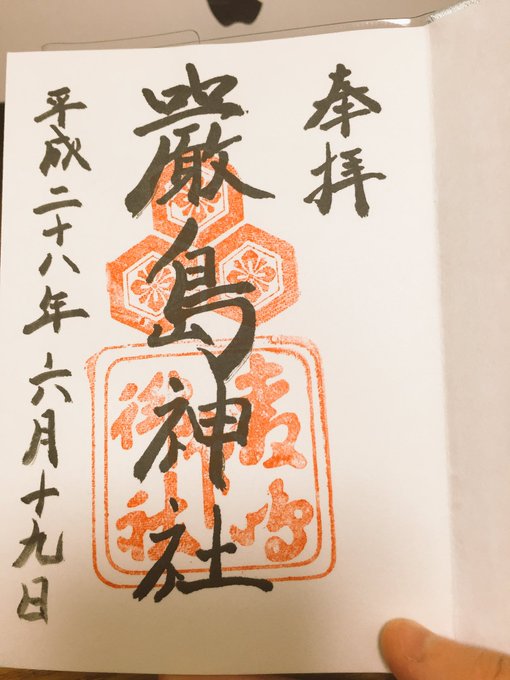 奉拝
嚴島神社
平成二十八年六月十九日